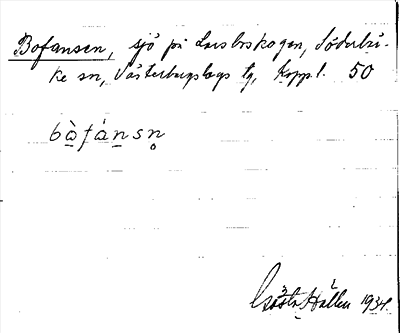 Bofansen, sjö på Larsboskogen, Söderbär-
ke sn, Västerbergslags tg, Koppl. 50
bòfánsn
Gösta Hållen 1934.